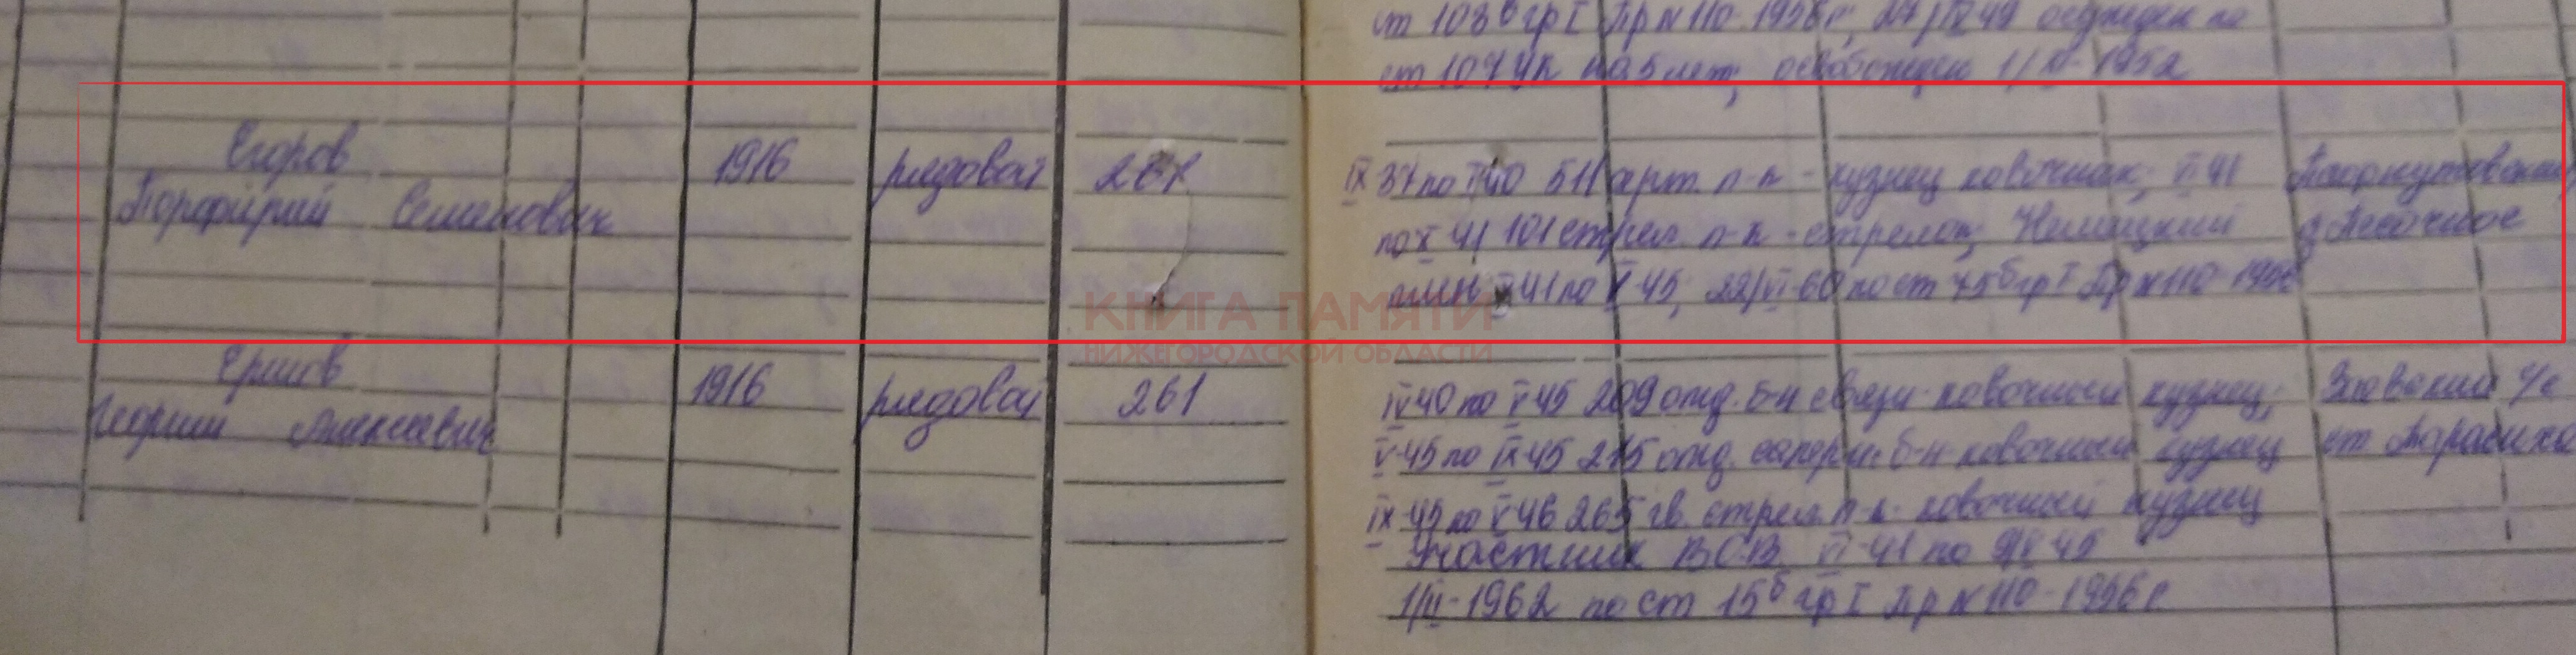 ст 103б гр I Пр N 110 1956г,
ст 107 УК на 5 лет, освобожден 1/ 1952
Егоров
Порфирий Семенович
1916 рядовой 261
IX 37 по 40 511 арт. п-к - кузнец ковочный; VI 41
по X 41 101 стрел. п-к - стрелок; Немецкий д Песочное
плен X 41 по V 45; 22/VI-60 по ст 75б гр I Пр N 110 1956г
КНИГА ПАМЯТИ
НИЖЕГОРОДСКОЙ ОБЛАСТИ
Ершов
Георгий Алексеевич
1916 рядовой 261
IV 40 по V 45 209 отд. б-н связи ковочный кузнец;
V-45 по IX 45 215 отд. саперн. б-н ковочный кузнец ст Тарасиха
IX-45 по V 46 265 гв. стрел. п-к. ковочный кузнец
Участник ВОВ VI-41 по 9/V 45
1/III-1962 по ст 15б гр I Пр N 110-1956г